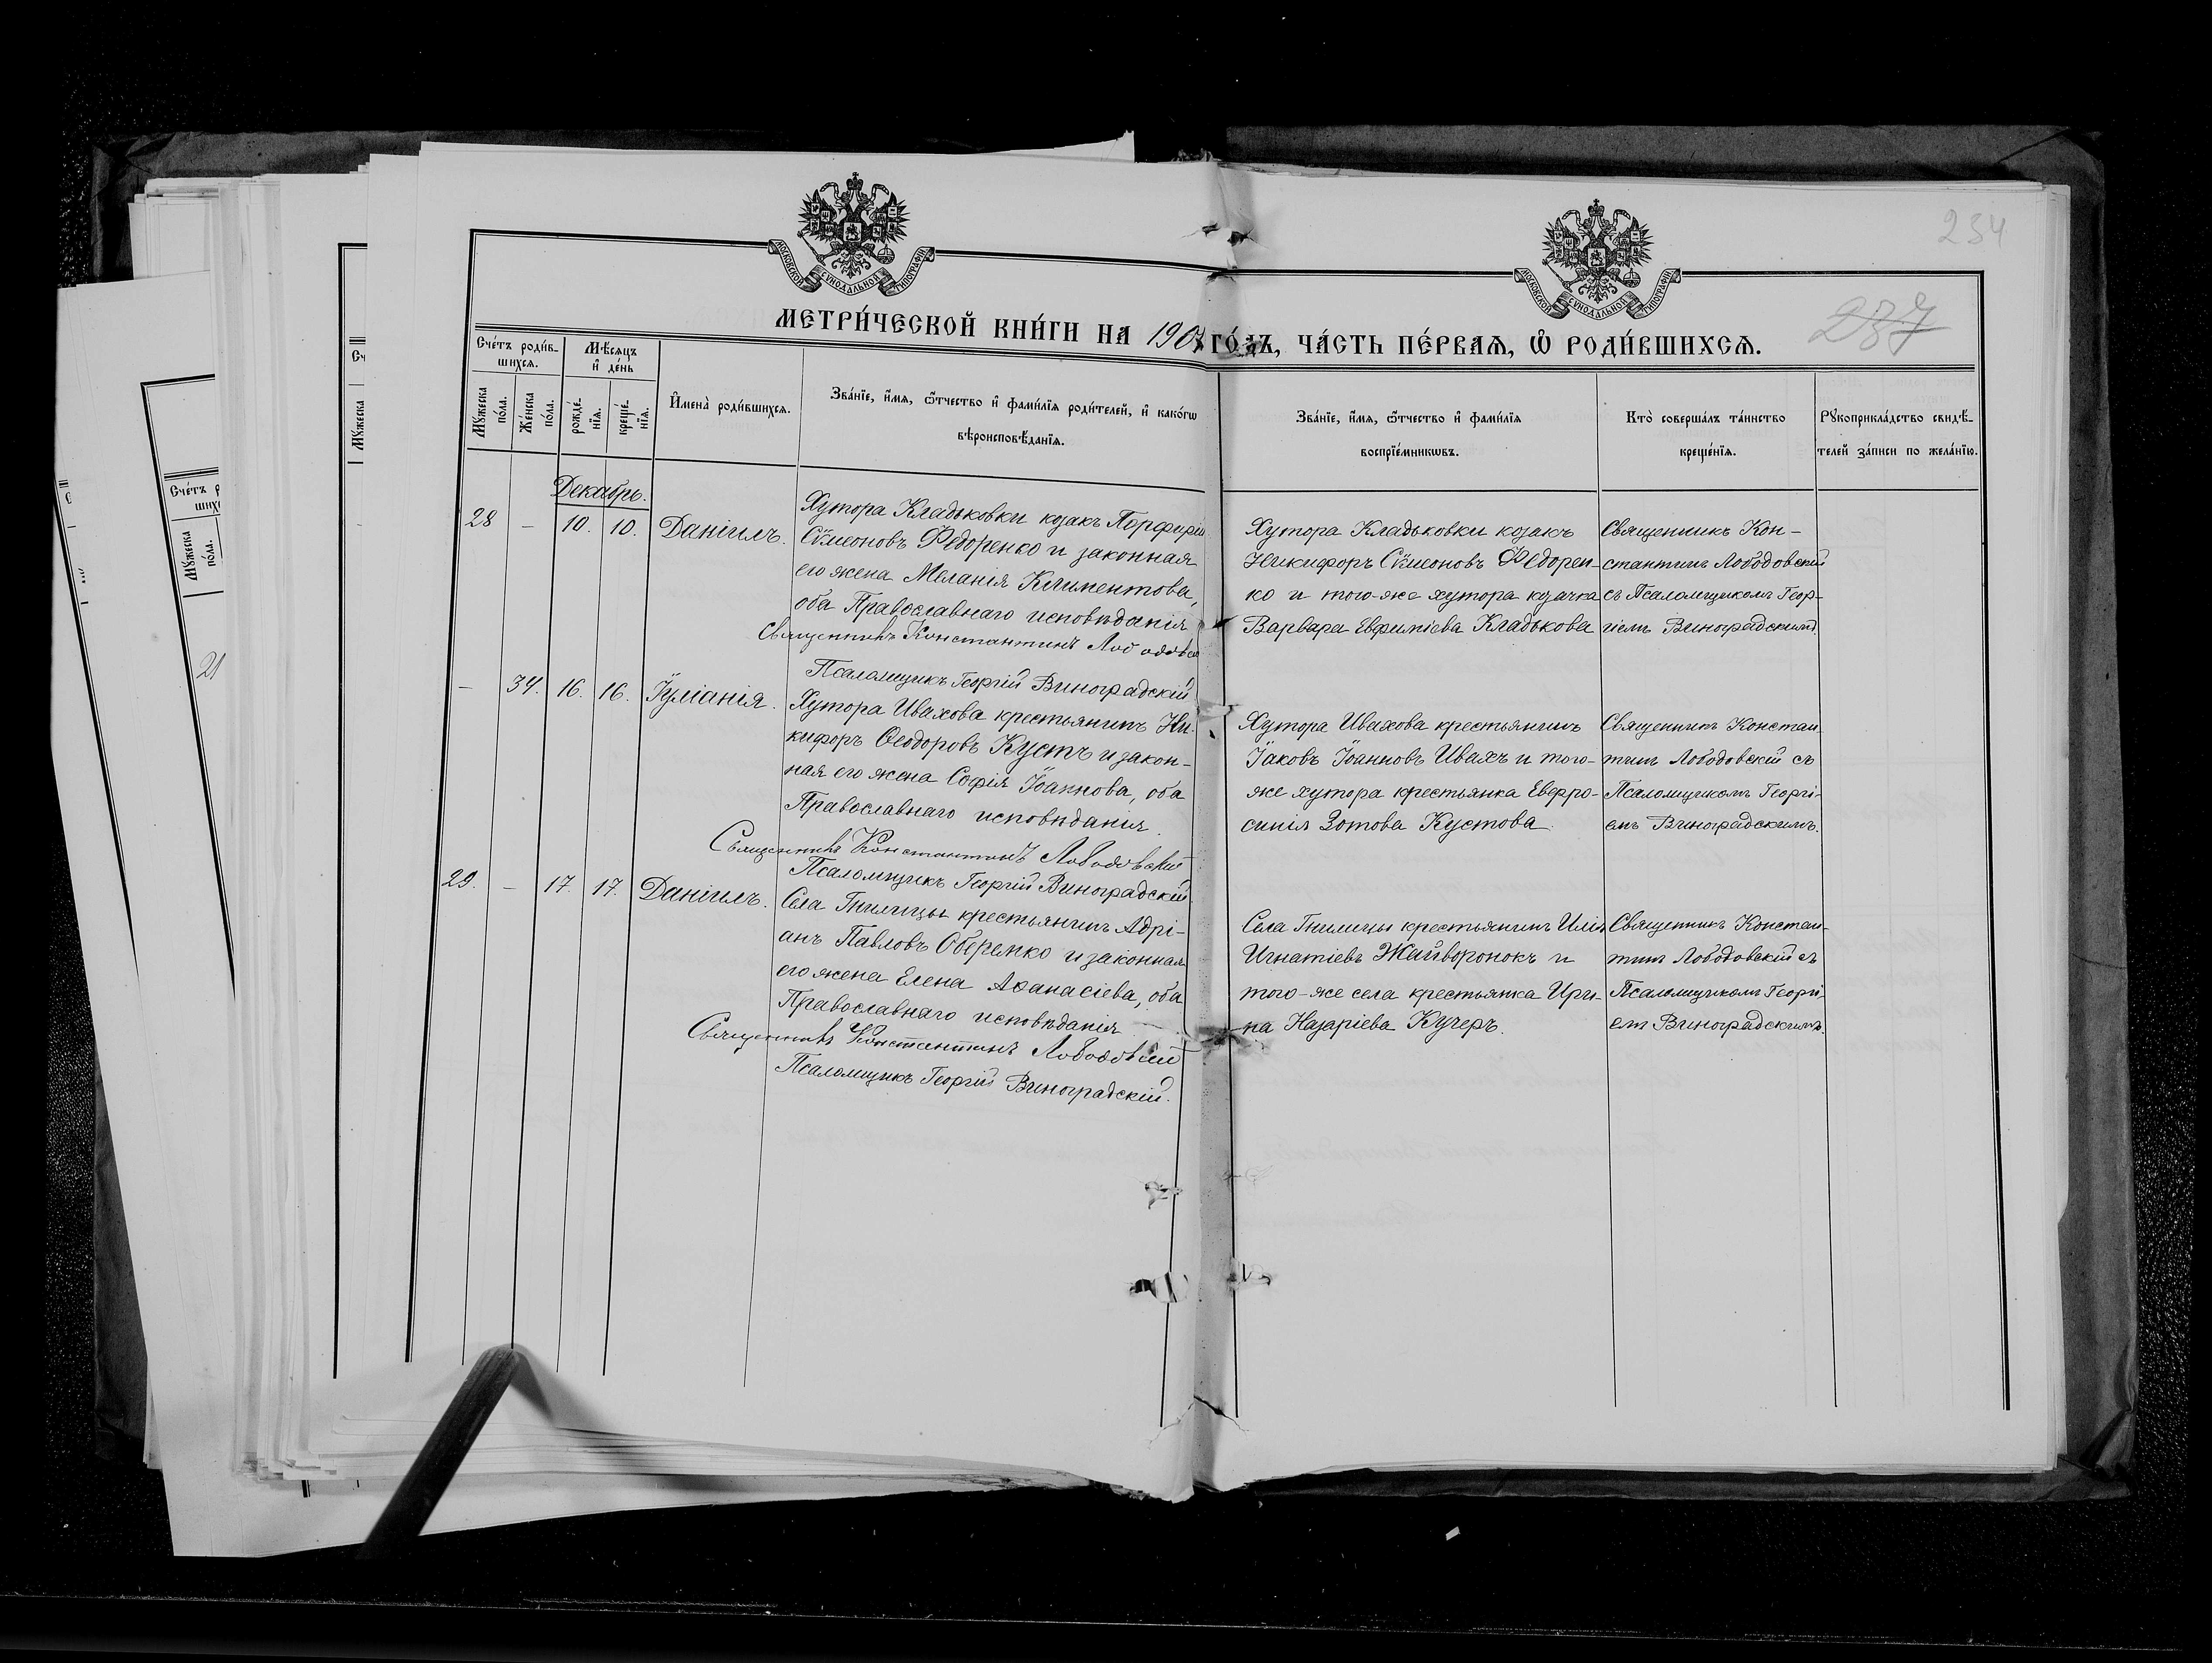 234
237
МОСКОВСКОЙ СУНОДАЛЬНОЙ ТИПОГРАФІИ
МОСКОВСКОЙ СУНОДАЛЬНОЙ ТИПОГРАФІИ
МЕТРИ́ЧЕСКОЙ КНИ́ГИ НА 1907 ГО́ДЪ, ЧА́СТЬ ПЕ́РВАѦ, Ѡ РОДИ́ВШИХСѦ.
Сче́тъ роди́в-
шихсѧ.
Мѣ́сѧцъ
и҆ де́нь
Мꙋ́жеска
по́ла.
Же́нска
по́ла.
рожде́-
нїѧ.
креще́-
нїѧ.
И҆мена̀ роди́вшихсѧ.
Зва́нїе, и҆́мѧ, ѻ҆́тчество и҆ фами́лїѧ роди́телей, и҆ како́гѡ
вѣроисповѣ́данїѧ.
Зва́нїе, и҆́мѧ, ѻ҆́тчество и҆ фами́лїѧ
воспрїе́мникѡвъ.
Кто̀ соверша́лъ та́инство
креще́нїѧ.
Рꙋкоприкла́дство свидѣ́-
телей за́писи по жела́нїю.
Декабрь.
28 – 10. 10. Даніилъ.
Хутора Кладьковки козакъ Порфирій
Сѷмеоновъ Ѳедоренко и законная
его жена Меланія Климентова,
оба Православнаго исповѣданія
Священникъ Константинъ Лободовскій
Псаломщикъ Георгій Виноградскій
Хутора Кладьковки козакъ
Никифоръ Сѷмеоновъ Ѳедорен-
ко и того-же хутора козачка
Варвара Евфиміева Кладькова
Священникъ Кон-
стантинъ Лободовскій
съ Псаломщикомъ Геор-
гіемъ Виноградскимъ.
– 34. 16. 16. Іуліанія.
Хутора Ивахова крестьянинъ Ни-
кифоръ Ѳеодоровъ Кустъ и закон-
ная его жена Софія Іоаннова, оба
Православнаго исповѣданія.
Священникъ Константинъ Лободовскій
Псаломщикъ Георгій Виноградскій
Хутора Ивахова крестьянинъ
Іаковъ Іоанновъ Ивахъ и того-
же хутора крестьянка Евфро-
синія Зотова Кустова.
Священникъ Констан-
тинъ Лободовскій съ
Псаломщикомъ Георгі-
емъ Виноградскимъ.
29. – 17. 17. Даніилъ.
Села Гнилицы крестьянинъ Адрі-
анъ Павловъ Оберемко и законная
его жена Елена Аѳанасіева, оба
Православнаго исповѣданія
Священникъ Константинъ Лободовскій
Псаломщикъ Георгій Виноградскій.
Села Гнилицы крестьянинъ Илія
Игнатіевъ Жайворонокъ и
того-же села крестьянка Ири-
на Назаріева Кучеръ.
Священникъ Констан-
тинъ Лободовскій съ
Псаломщикомъ Георгі-
емъ Виноградскимъ.
Сче́тъ р
шихс
Мꙋ́жеска
по́ла.
21
Сч
Мꙋ́жеска